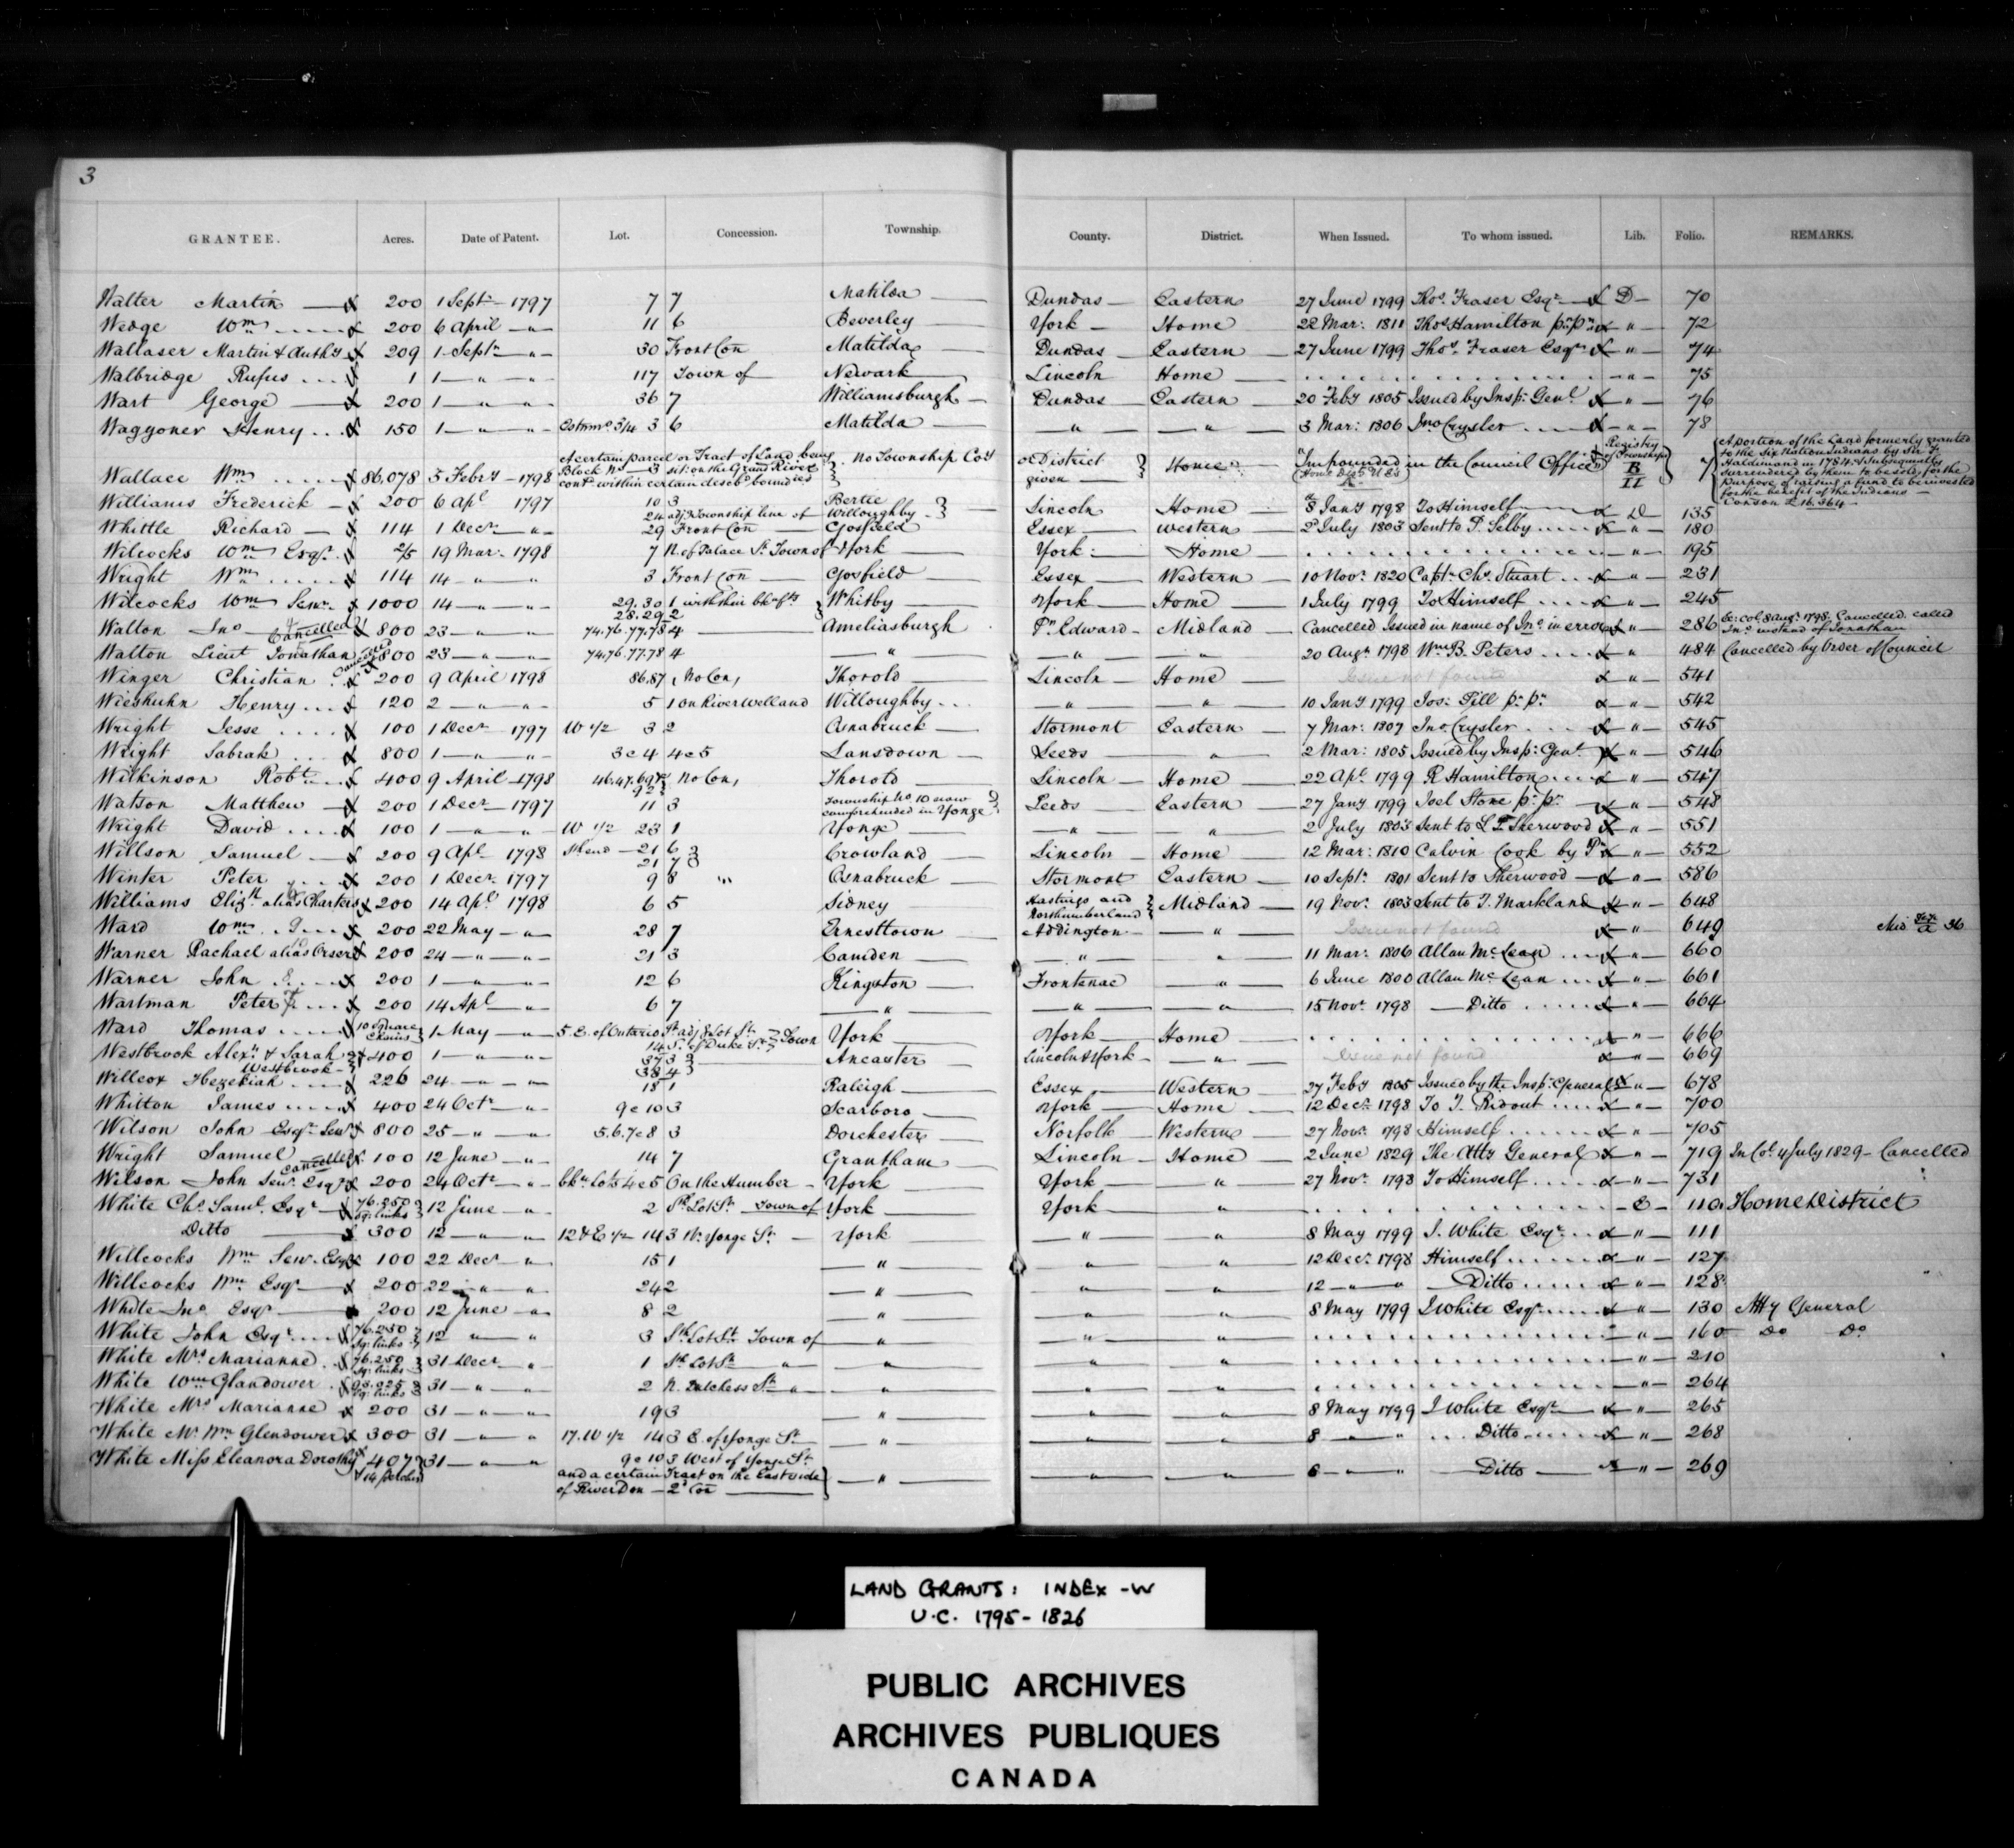 3
GRANTEE. Acres. Date of Patent. Lot. Concession. Township. County. District. When Issued. To whom issued. Lib. Folio. REMARKS.
Walter Martin 200 1 Sept 1797 7 7 Matilda Dundas Eastern 27 June 1799 Thos. Fraser Esqr D 70
Wedge Wm 200 6 April " 11 6 Beverley York Home 22 Mar: 1811 Thos Hamilton " 72
Wallaser Martin & Anthy 209 1 Sept " 30 Front Con Matilda Dundas Eastern 27 June 1799 Thos. Fraser Esqr " 74
Walbridge Rufus 1 1 " " 117 Town of Newark Lincoln Home " 75
Wart George 200 1 " " 36 7 Williamsburgh Dundas Eastern 20 Feby 1805 Issued by Insp: Genl " 76
Waggoner Henry 150 1 " " 3/4 3 6 Matilda " " 3 Mar: 1806 Jno Crysler " 78
Wallace Wm 86,078 5 Feby 1798 A certain parcel or Tract of Land being Block No 3 sit: on the Grand River contg within certain descbd boundies No Township Coy or District given Home "Impounded in the Council Office" Registry of Townships B II 7 A portion of the Land formerly granted to the Six Nation Indians by Sir F. Haldimand in 1784 & Subsequently surrendered by them to be sold, for the purpose of raising a fund to be invested for the benefit of the Indians Conson £16.364
Williams Frederick 200 6 Apl 1797 10 3 Bertie
24 adjg Township line of Willoughby Lincoln Home 8 Jany 1798 To Himself D 135
Whittle Richard 114 1 Decr " 29 Front Con Gosfield Essex Western 2 July 1803 Sent to P. Selby " 180
Wilcocks Wm Esqr 2/5 19 Mar: 1798 7 N. of Palace St. Town of York York Home " 195
Wright Wm 114 14 " " 3 Front Con Gosfield Essex Western 10 Novr 1820 Capt. Chs. Stuart " 231
Wilcocks Wm Senr 1000 14 " " 29.30 1 with their bkn fts Whitby York Home 1 July 1799 To Himself " 245
28.29 2
Walton Jno Cancelled 800 23 " " 74.76.77.78 4 Ameliasburgh Pn Edward Midland Cancelled Issued in name of Jno in error " 286 Ex: col 8 Augt 1798. Cancelled. called Jno instead of Jonathan
Walton Lieut Jonathan Cancelled 800 23 " " 74.76.77.78 4 " " " 20 Augt 1798 Wm B. Peters " 484 Cancelled by Order of Council
Winger Christian 200 9 April 1798 86.87 No Con, Thorold Lincoln Home Issue not found " 541
Wieshuhn Henry 120 2 " " 5 1 on River Welland Willoughby " " 10 Jany 1799 Jos: Pill pr pr " 542
Wright Jesse 100 1 Decr 1797 W 1/2 3 2 Osnabruck Stormont Eastern 7 Mar: 1807 Jno Crysler " 545
Wright Sabrah 800 1 " " 3 & 4 4 & 5 Lansdown Leeds " 2 Mar: 1805 Issued by Insp: Genl " 546
Wilkinson Robt 400 9 April 1798 No Con, Thorold Lincoln Home 22 Apl 1799 R Hamilton " 547
Watson Matthew 200 1 Decr 1797 11 3 Township No 10 now comprehended in Yonge Leeds Eastern 27 Jany 1799 Joel Stone pr pr " 548
Wright David 100 1 " " W 1/2 23 1 Yonge " " 2 July 1803 Sent to L P Sherwood " 551
Willson Samuel 200 9 Apl 1798 21 6 Crowland Lincoln Home 12 Mar: 1810 Calvin Cook by Pr " 552
21 7
Winter Peter 200 1 Decr 1797 9 8 Osnabruck Stormont Eastern 10 Sept 1801 Sent to Sherwood " 586
Williams Elizth alias Charters 200 14 Apl 1798 6 5 Sidney Hastings and Northumberland Midland 19 Novr 1803 Sent to T. Markland " 648
Ward Wm 200 22 May " 28 7 Ernesttown Addington " Issue not found " 649
Warner Rachael alias Orser 200 24 " " 21 3 Camden " " 11 Mar: 1806 Allan McLean " 660
Warner John 200 1 " " 12 6 Kingston Frontenac " 6 June 1800 Allan McLean " 661
Wartman Peter 200 14 Apl " 6 7 " " " 15 Novr 1798 Ditto " 664
Ward Thomas 10 Square Chains 1 May " 5. E. of Ontario St adj & Lot St. Town York York Home " 666
14 S. of Duke St
Westbrook Alexr & Sarah Westbrook 400 1 " " 37 3 Ancaster Lincoln & York " Issue not found " 669
38 4
Willcox Hezekiah 226 24 " " 18 1 Raleigh Essex Western 27 Feby 1805 Issued by the Insp: General " 678
Whitton James 400 24 Octr " 9 & 10 3 Scarboro York Home 12 Decr 1798 To T. Ridout " 700
Wilson John Esqr Senr 800 25 " " 5.6.7 & 8 3 Dorchester Norfolk Western 27 Novr 1798 Himself " 705
Wright Samuel Cancelled 100 12 June " 14 7 Grantham Lincoln Home 2 June 1829 The Atty General " 719 In Col 4 July 1829 - Cancelled
Wilson John Senr Esqr 200 24 Octr " bkn Lots 4 & 5 On the Humber York York " 27 Novr 1798 To Himself " 731
White Chs. Saml. Esqr 76.250 sq: links 12 June " 2 Sth Lot St. Town of York York " E 110 Home District
Ditto 300 12 " " 12 & E 1/2 14 3 W. Yonge St. York " " 8 May 1799 J. White Esqr " 111
Willcocks Wm Sen. Esqr 100 22 Decr " 15 1 " " " 12 Decr 1798 Himself " 127
Willcocks Wm Esqr 200 22 " " 24 2 " " " 12 " " Ditto " 128
White Jno Esqr 200 12 June " 8 2 " " " 8 May 1799 J White Esqr " 130 Atty General
White John Esqr 76.250 sq: links 12 " " 3 Sth Lot St. Town of " " " " 160 Do Do
White Mrs Marianne 76.250 sq: links 31 Decr " 1 Sth Lot St " " " " " 210
White Wm Glandower sq: links 31 " " 2 N. Dutchess St " " " " " 264
White Mrs Marianne 200 31 " " 19 3 " " " 8 May 1799 J White Esqr " 265
White Mr Wm Glendower 300 31 " " 17. W 1/2 14 3 E. of Yonge St " " " 8 " " Ditto " 268
White Miss Eleanora Dorothy 407 & 14 perches 31 " " 9 & 10 3 West of Yonge St. " " " 8 " " Ditto " 269
and a certain Tract on the East side
of River Don - 2d Con
LAND GRANTS: INDEX - W
U.C. 1795-1826
PUBLIC ARCHIVES
ARCHIVES PUBLIQUES
CANADA